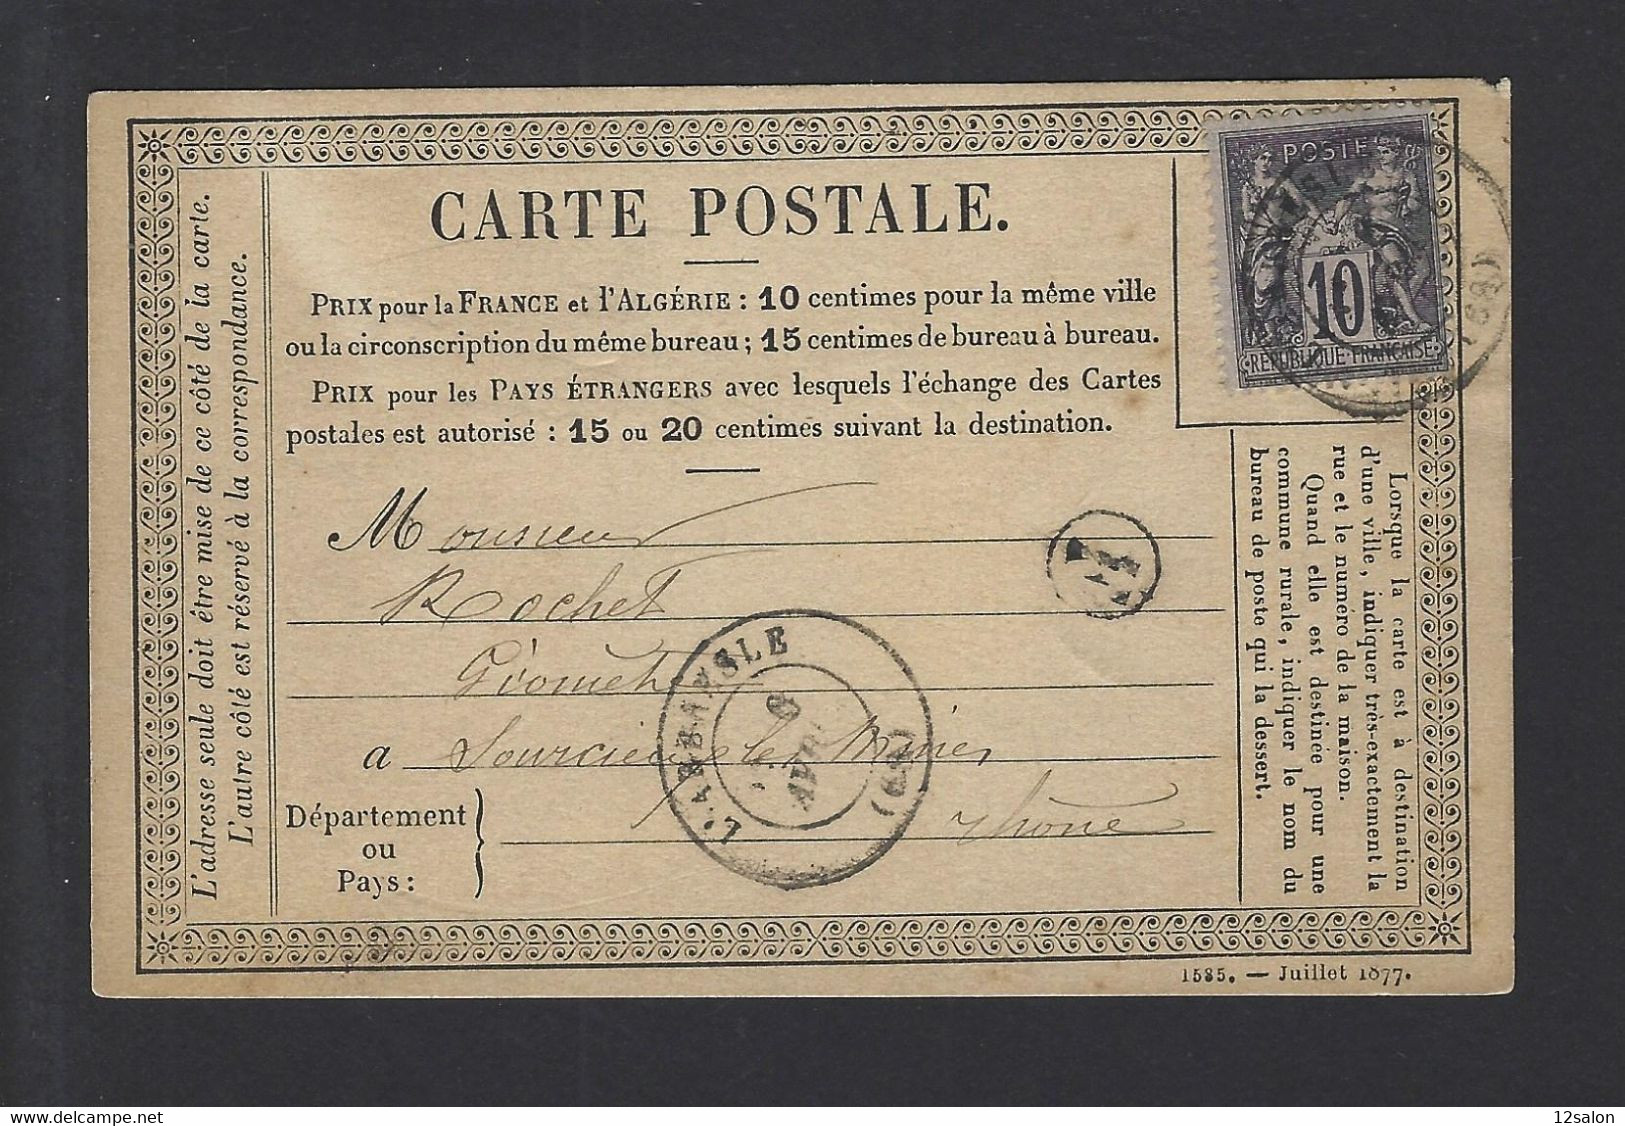 CARTE POSTALE.
PRIX pour la FRANCE et l'ALGÉRIE : 10 centimes pour la même ville
ou la circonscription du même bureau ; 15 centimes de bureau à bureau.
PRIX pour les PAYS ÉTRANGERS avec lesquels l'échange des Cartes
postales est autorisé : 15 ou 20 centimes suivant la destination.
L'adresse seule doit être mise de ce côté de la carte.
L'autre côté est réservé à la correspondance.
POSTE
10
REPUBLIQUE FRANÇAISE
Monsieur
Rochet
Géomet
a Sourcieu les Mines
Rhône
Département
ou
Pays :
L'ARBRESLE
6
AVRIL
(69)
Lorsque la carte est à destination
d'une ville, indiquer très-exactement la
rue et le numéro de la maison.
Quand elle est destinée pour une
commune rurale, indiquer le nom du
bureau de poste qui la dessert.
1585. — Juillet 1877.
delcampe.net
12salon